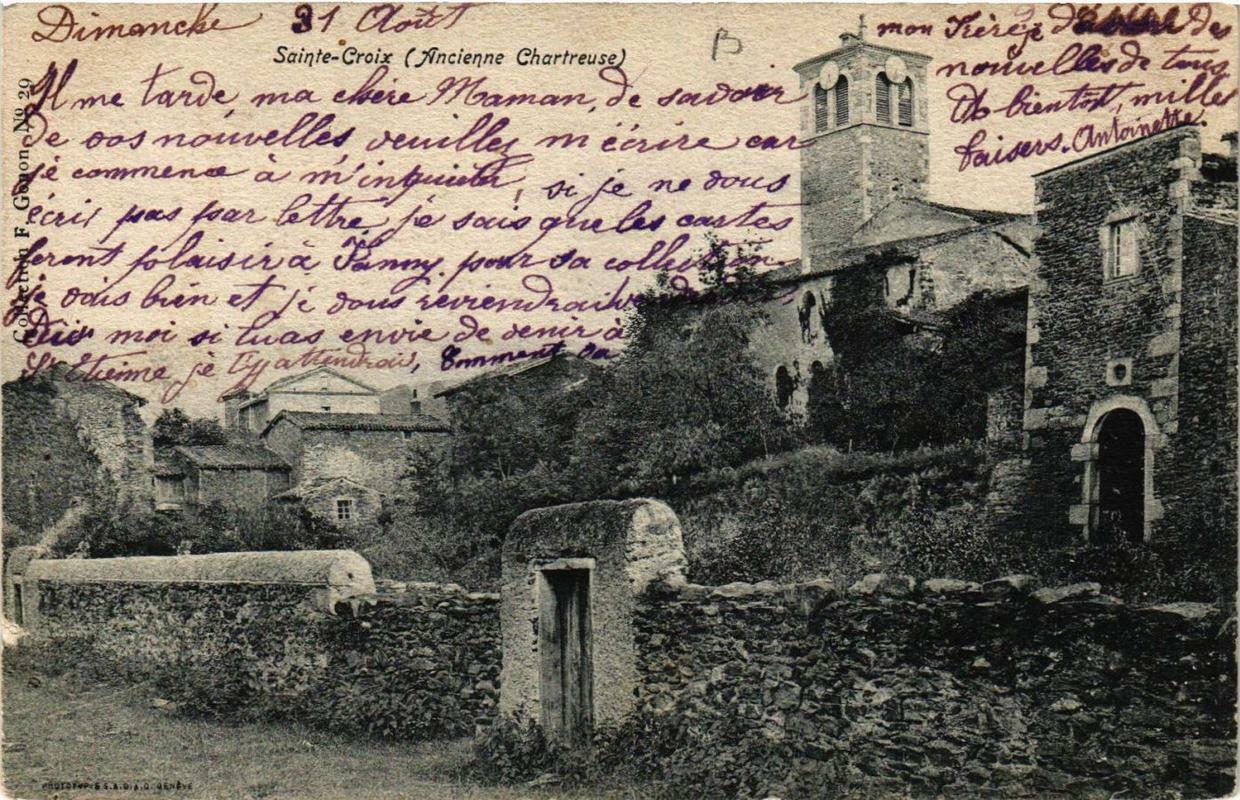 Dimanche 31 Août
Sainte-Croix (Ancienne Chartreuse)
B
Il me tarde ma chère Maman, de savoir
de vos nouvelles veuillez m'écrire car
je commence à m'inquiéter, si je ne vous
écris pas par lettre, je sais que les cartes
feront plaisir à Fanny pour sa collection
je vais bien et je vous reviendrai
Dis moi si tu as envie de venir à
St Etienne je t'y attendrais, Comment va
mon Frère, des
nouvelles de tous
A bientôt, milles
baisers. Antoinette.
Collection F. Gonon No 29
PHOTOTYPIE S.A.D.A.G. GENÈVE